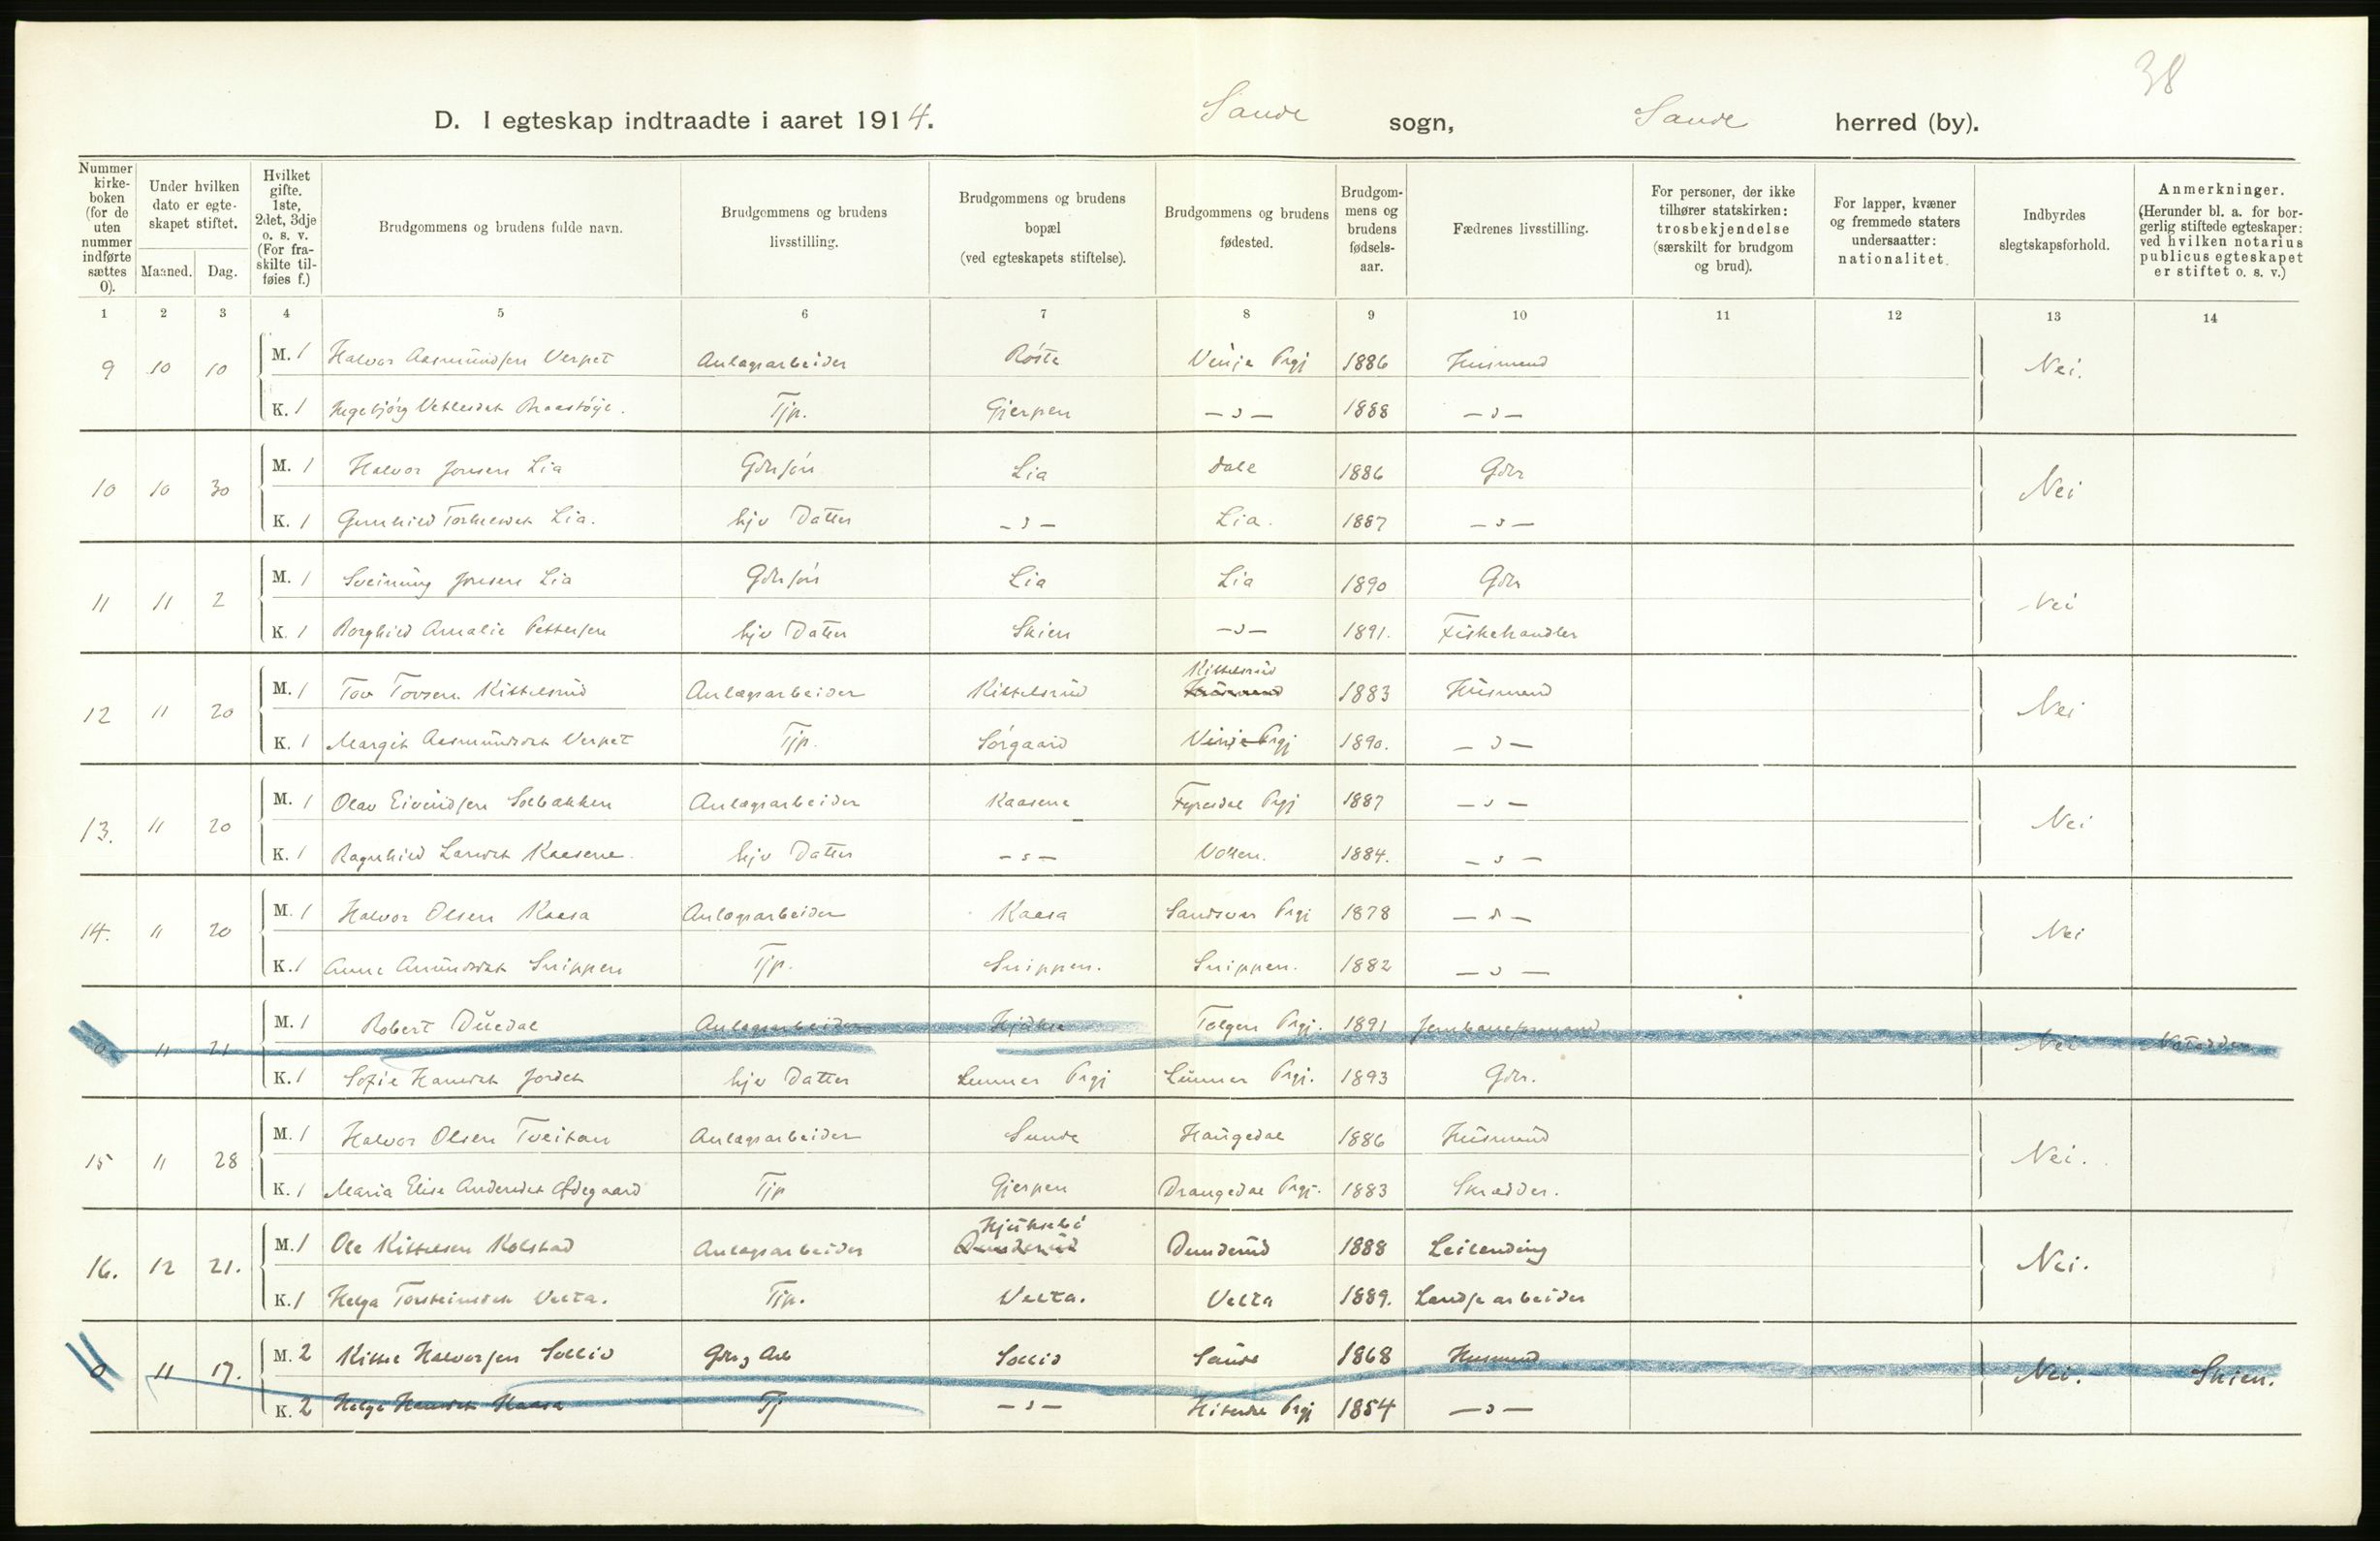 38
D. I egteskap indtraadte i aaret 1914. Saude sogn, Saude herred (by).
Nummer kirkeboken (for de uten nummer indførte sættes 0).
Under hvilken dato er egteskapet stiftet.
Maaned. Dag.
Hvilket gifte. 1ste, 2det, 3dje o. s. v. (For fraskilte tilføies f.)
Brudgommens og brudens fulde navn.
Brudgommens og brudens livsstilling.
Brudgommens og brudens bopæl (ved egteskapets stiftelse).
Brudgommens og brudens fødested.
Brudgommens og brudens fødselsaar.
Fædrenes livsstilling.
For personer, der ikke tilhører statskirken: trosbekjendelse (særskilt for brudgom og brud).
For lapper, kvæner og fremmede staters undersaatter: nationalitet.
Indbyrdes slegtskapsforhold.
Anmerkninger. (Herunder bl. a. for borgerlig stiftede egteskaper: ved hvilken notarius publicus egteskapet er stiftet o. s. v.)
1 2 3 4 5 6 7 8 9 10 11 12 13 14
9 10 10 M. 1 Halvor Aasmundsen Verpet Anlægsarbeider Röste Vinje Prgj 1886 Husmand Nei.
K. 1 Ingebjörg Vetlesdat Tjp. Gjerpen — " — 1888 — " —
10 10 30 M. 1 Halvor Jonsen Lia Gdbrsön Lia Dale 1886 Gdbr Nei
K. 1 Gunhild Torkelsdat Lia. hjv Datter — " — Lia. 1887 — " —
11 11 2 M. 1 Sveinung Jonsen Lia Gdbrsön Lia Lia 1890 Gdbr Nei
K. 1 Borghild Amalie Pettersen hjv Datter Skien — " — 1891. Fiskehandler
Kittelsrud
12 11 20 M. 1 Tov Tovsen Kittelsrud Anlægsarbeider Kittelsrud 1883 Husmand Nei
K. 1 Margit Aasmundsdat Verpet Tjp. Sörgaard Vinje Prgj 1890. — " —
13. 11 20 M. 1 Olav Eivindsen Solbakken Anlægsarbeider Kaasene Fyresdal Prgj 1887 — " — Nei
K. 1 Ragnhild Larsdat Kaasene. hjv Datter — " — 1884. — " —
14. 11 20 M. 1 Halvor Olsen Kaasa Anlægsarbeider Kaasa Sandsvær Prgj 1878 — " — Nei
K. 1 Anne Amundsdat Snippen Tjp. Snippen. Snippen. 1882 — " —
0 11 21 M. 1 Robert Duedal Anlægsarbeider Hjukse Tolgen Prgj. 1891 Jernbaneformand Nei Notodden
K. 1 Sofie Hansdat Jordet hjv Datter Lunner Prgj Lunner Prgj. 1893 Gdbr.
15 11 28 M. 1 Halvor Olsen Tveitan Anlægsarbeider Sunde Haugedal 1886 Husmand Nei.
K. 1 Maria Elise Andersdat Ødegaard Tjp Gjerpen Drangedal Prgj. 1883 Skrædder.
Hjuksebö
16. 12 21. M. 1 Ole Kittelsen Kolstad Anlægsarbeider Dunderud Dunderud 1888 Leilending Nei.
K. 1 Helga Torsteinsdat Velta. Tjp. Velta. Velta 1889. Landsearbeider
0 11 17. M. 2 Kittil Halvorsen Sollid Gdbr, Arb Sollid Saude 1868 Husmand Nei. Skien.
K. 2 Helge Hansdat Kaasa Tj — " — Hiterdal Prgj 1854 — " —